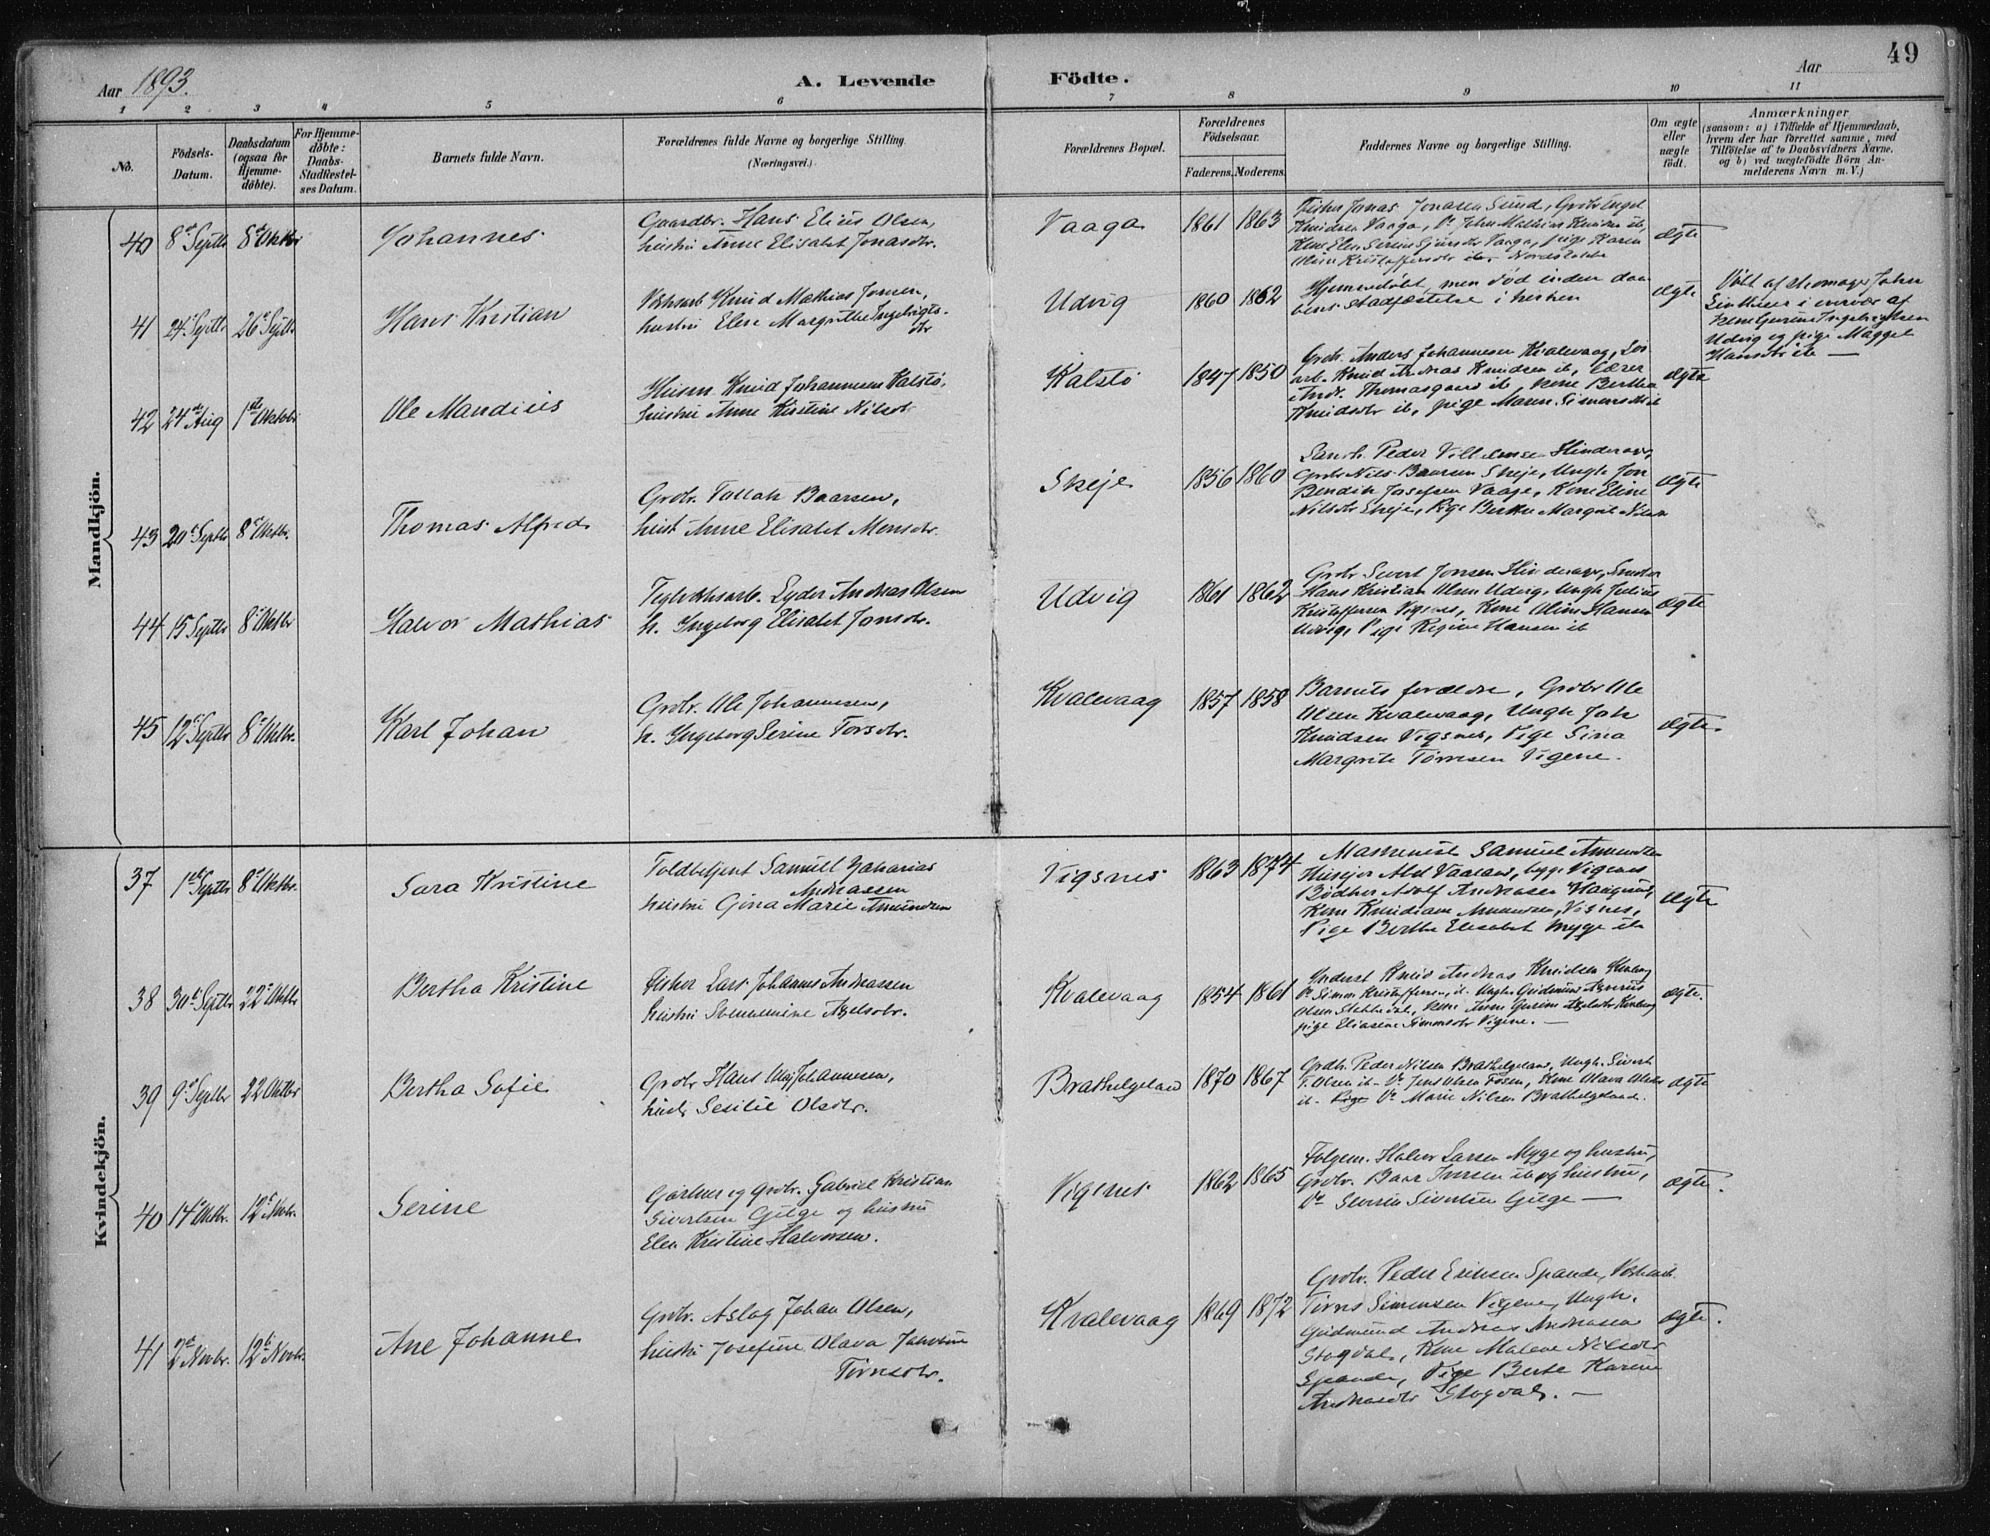 49
Aar 1893.
A. Levende Födte.
Aar
1 2 3 4 5 6 7 8 9 10 11
No.
Födsels-
Datum.
Daabsdatum
(ogsaa for
Hjemme-
döbte).
For Hjemme-
döbte:
Daabs-
StadRestel-
ses Datum.
Barnets fulde Navn.
Forældrenes fulde Navne og borgerlige Stilling.
(Næringsvei.)
Forældrenes Bopæl.
Forældrenes
Födselsaar.
Faderens. Moderens.
Faddernes Navne og borgerlige Stilling.
Om ægte
eller
uægte
födt.
Anmærkninger
(saasom: a) i Tilfælde af Hjemmedaab,
hvem der har forrettet samme, med
Tilföielse af to Daabsvidners Navne,
og b) ved uægtefödte Börn An-
melderens Navn m. V.)
Mandkjön.
40 8de Septbr 8de Oktbr
Johannes
Gaardbr. Hans Elius Olsen,
hustru Anne Elisabet Jonasdtr.
Vaaga 1861 1863
Fisker Jonas Jonasen Sund,
Knudsen Vaaga, Do John Mathias Knudsen ib,
ægte
41 24 Septbr 26 Septbr
Hans Kristian
Knud Mathias Jonsen,
hustru Elen Margrethe Ingebrigts-
dtr
Udvig 1860 1862
Hjemmedøbt, men død inden daa-
bens stadfæstelse i kirken
ægte
Døbt af
Udvig og pige
Hansdtr ib —
42 24de Aug 1ste Oktobr
Ole Mandius
Husm Knud Johannesen Kalstø,
hustru Anne Kirstine Nilsdtr.
Kalstø 1847 1850
Grdr. Anders Johannesen Kvalevaag,
arb. Knud Andreas Knudsen ib, Lærer
Andr. Thomasgaard ib, Kone Bertha
Knudsdtr ib, pige Maren Simonsdtr ib
ægte
43 20de Septbr 8de Oktbr.
Thomas Alfred
Grdbr. Tollak Baarsen,
hust Anne Elisabet Monsdtr.
Skeje 1856 1860
Peder Villemsen Hinderaa,
Grdbr Nils Baarsen Skeje, Ungk Jon
Bendik Josefsen Vaage, Kone Eline
Nilsdtr Skeje, Pige Berthe Margret Nilsen
ægte
44 15 Septbr 8de Oktbr
Halvor Mathias
Teglverksarb. Lyder Andreas Olsen
h. Ingeborg Elisabet Jonsdtr.
Udvig 1861 1862
Grdbr Sivert Jonsen Hinderaa,
Hans Kristian Olsen Udvig, Ungk Julius
Kristoffersen Vigsnes, Kone Oline Hansen
Udvig, Pige Regine Hansen ib
ægte
45 12te Septbr 8de Oktbr.
Karl Johan
Grdbr. Ole Johannesen,
h. Ingeborg Serine Torsdtr.
Kvalevaag 1857 1858
Barnets forældre, Grdbr Ole
Olsen Kvalevaag, Ungk Joh
Knudsen Vigsnes, Pige Sina
Margrete Tørresen Vigene.
ægte.
Kvindekjön.
37 1ste Septbr 8de Oktbr
Sara Kristine
Toldbetjent Samuel Zakarias
Andreasen
hustru Gina Marie Amundsen
Vigsnes 1863 1874
Maskinist Samuel Amundsen
Bødker Adolf Andreasen Haugesund,
Kone Knudiane Amundsen, Visnes,
Pige Berthe Elisabet Mygge ib
ægte
38 30te Septbr 22de Oktbr
Bertha Kristine
Fisker Lars Johannes Andreassen
hustru Svennemine Axelsdtr.
Kvalevaag 1854 1861
Inderst Knud Andreas Knudsen
Do Simon Kristoffersen, ib
Olsen Stokkedal, Kone Anne Gurine Axelsdtr
pige Eliasene Simonsdtr Vigene. —
ægte.
39 9de Septbr 22 Oktbr
Bertha Sofie
Grdbr Hans Olaj Johannesen,
hustr Sesilie Olsdtr.
Brathelgeland 1870 1867
Grdbr. Peder Nilsen Brathelgeland, Ungk. Sivert
T. Olsen ib - Do Jens Olsen Fosen, Kone Olava Olsdtr
ib - Pige Do Marie Nilsen Brathelgeland.
ægte
40 14de Oktbr. 12te Novbr.
Serine
Gartner og Grdbr. Gabriel Kristian
Sivertsen Gilge og hustru
Elen Kristine Halvorsen.
Vigsnes 1862 1865
Folgem. Halvor Larsen Mygge og hustru,
Grdbr. Baar Iversen ib og hustru,
Do Severin Sivertsen Gilge —
ægte.
41 2den Novbr. 12te Novbr.
Ane Johanne
Grdbr. Aslag Johan Olsen,
hustru Josefine Olava Jakobine
Tørresdtr.
Kvalevaag 1869 1872
Grdbr. Peder Eriksen Spande,
Tørres Simonsen Vigene, Ungk.
Gudmund Andreas Andreasen
Stogdal, Kone Malene Nilsdtr
Spande, Pige Berte Karine
Andreasdtr Stogdal. —
ægte.